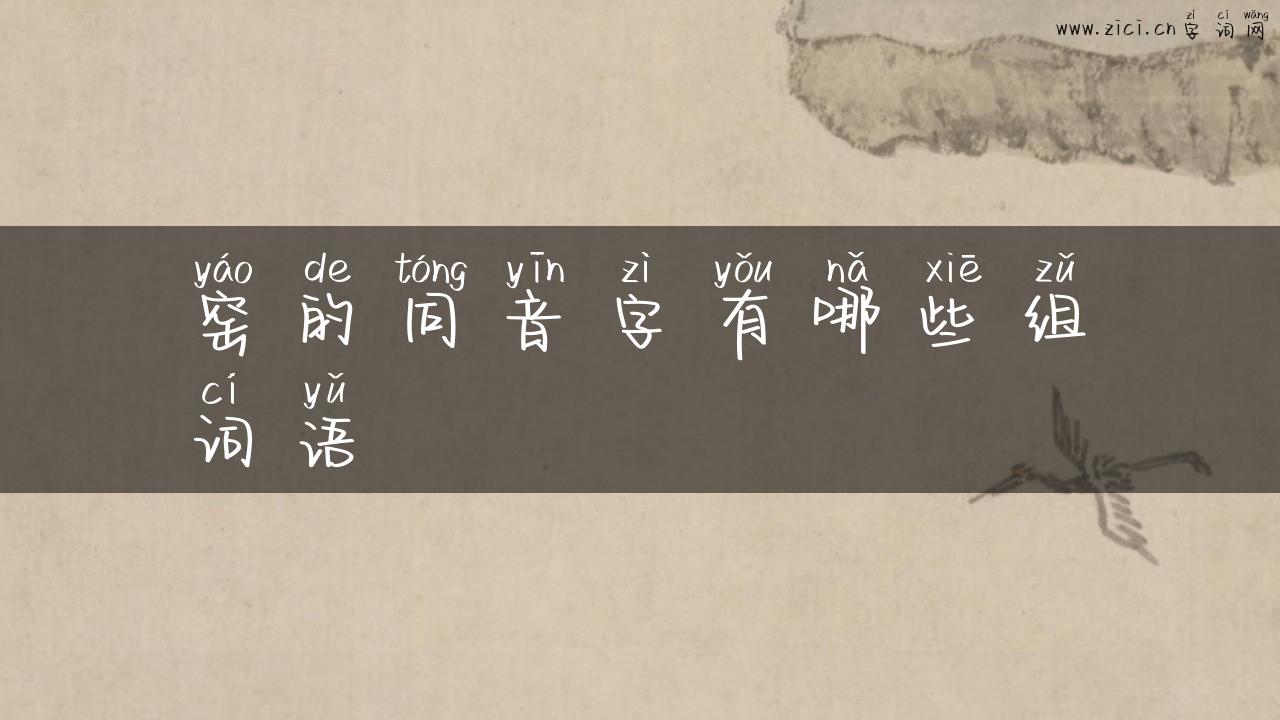 zì cí wǎng
www.zici.cn 字 词 网
yáo de tóng yīn zì yǒu nǎ xiē zǔ
窑 的 同 音 字 有 哪 些 组
cí yǔ
词 语